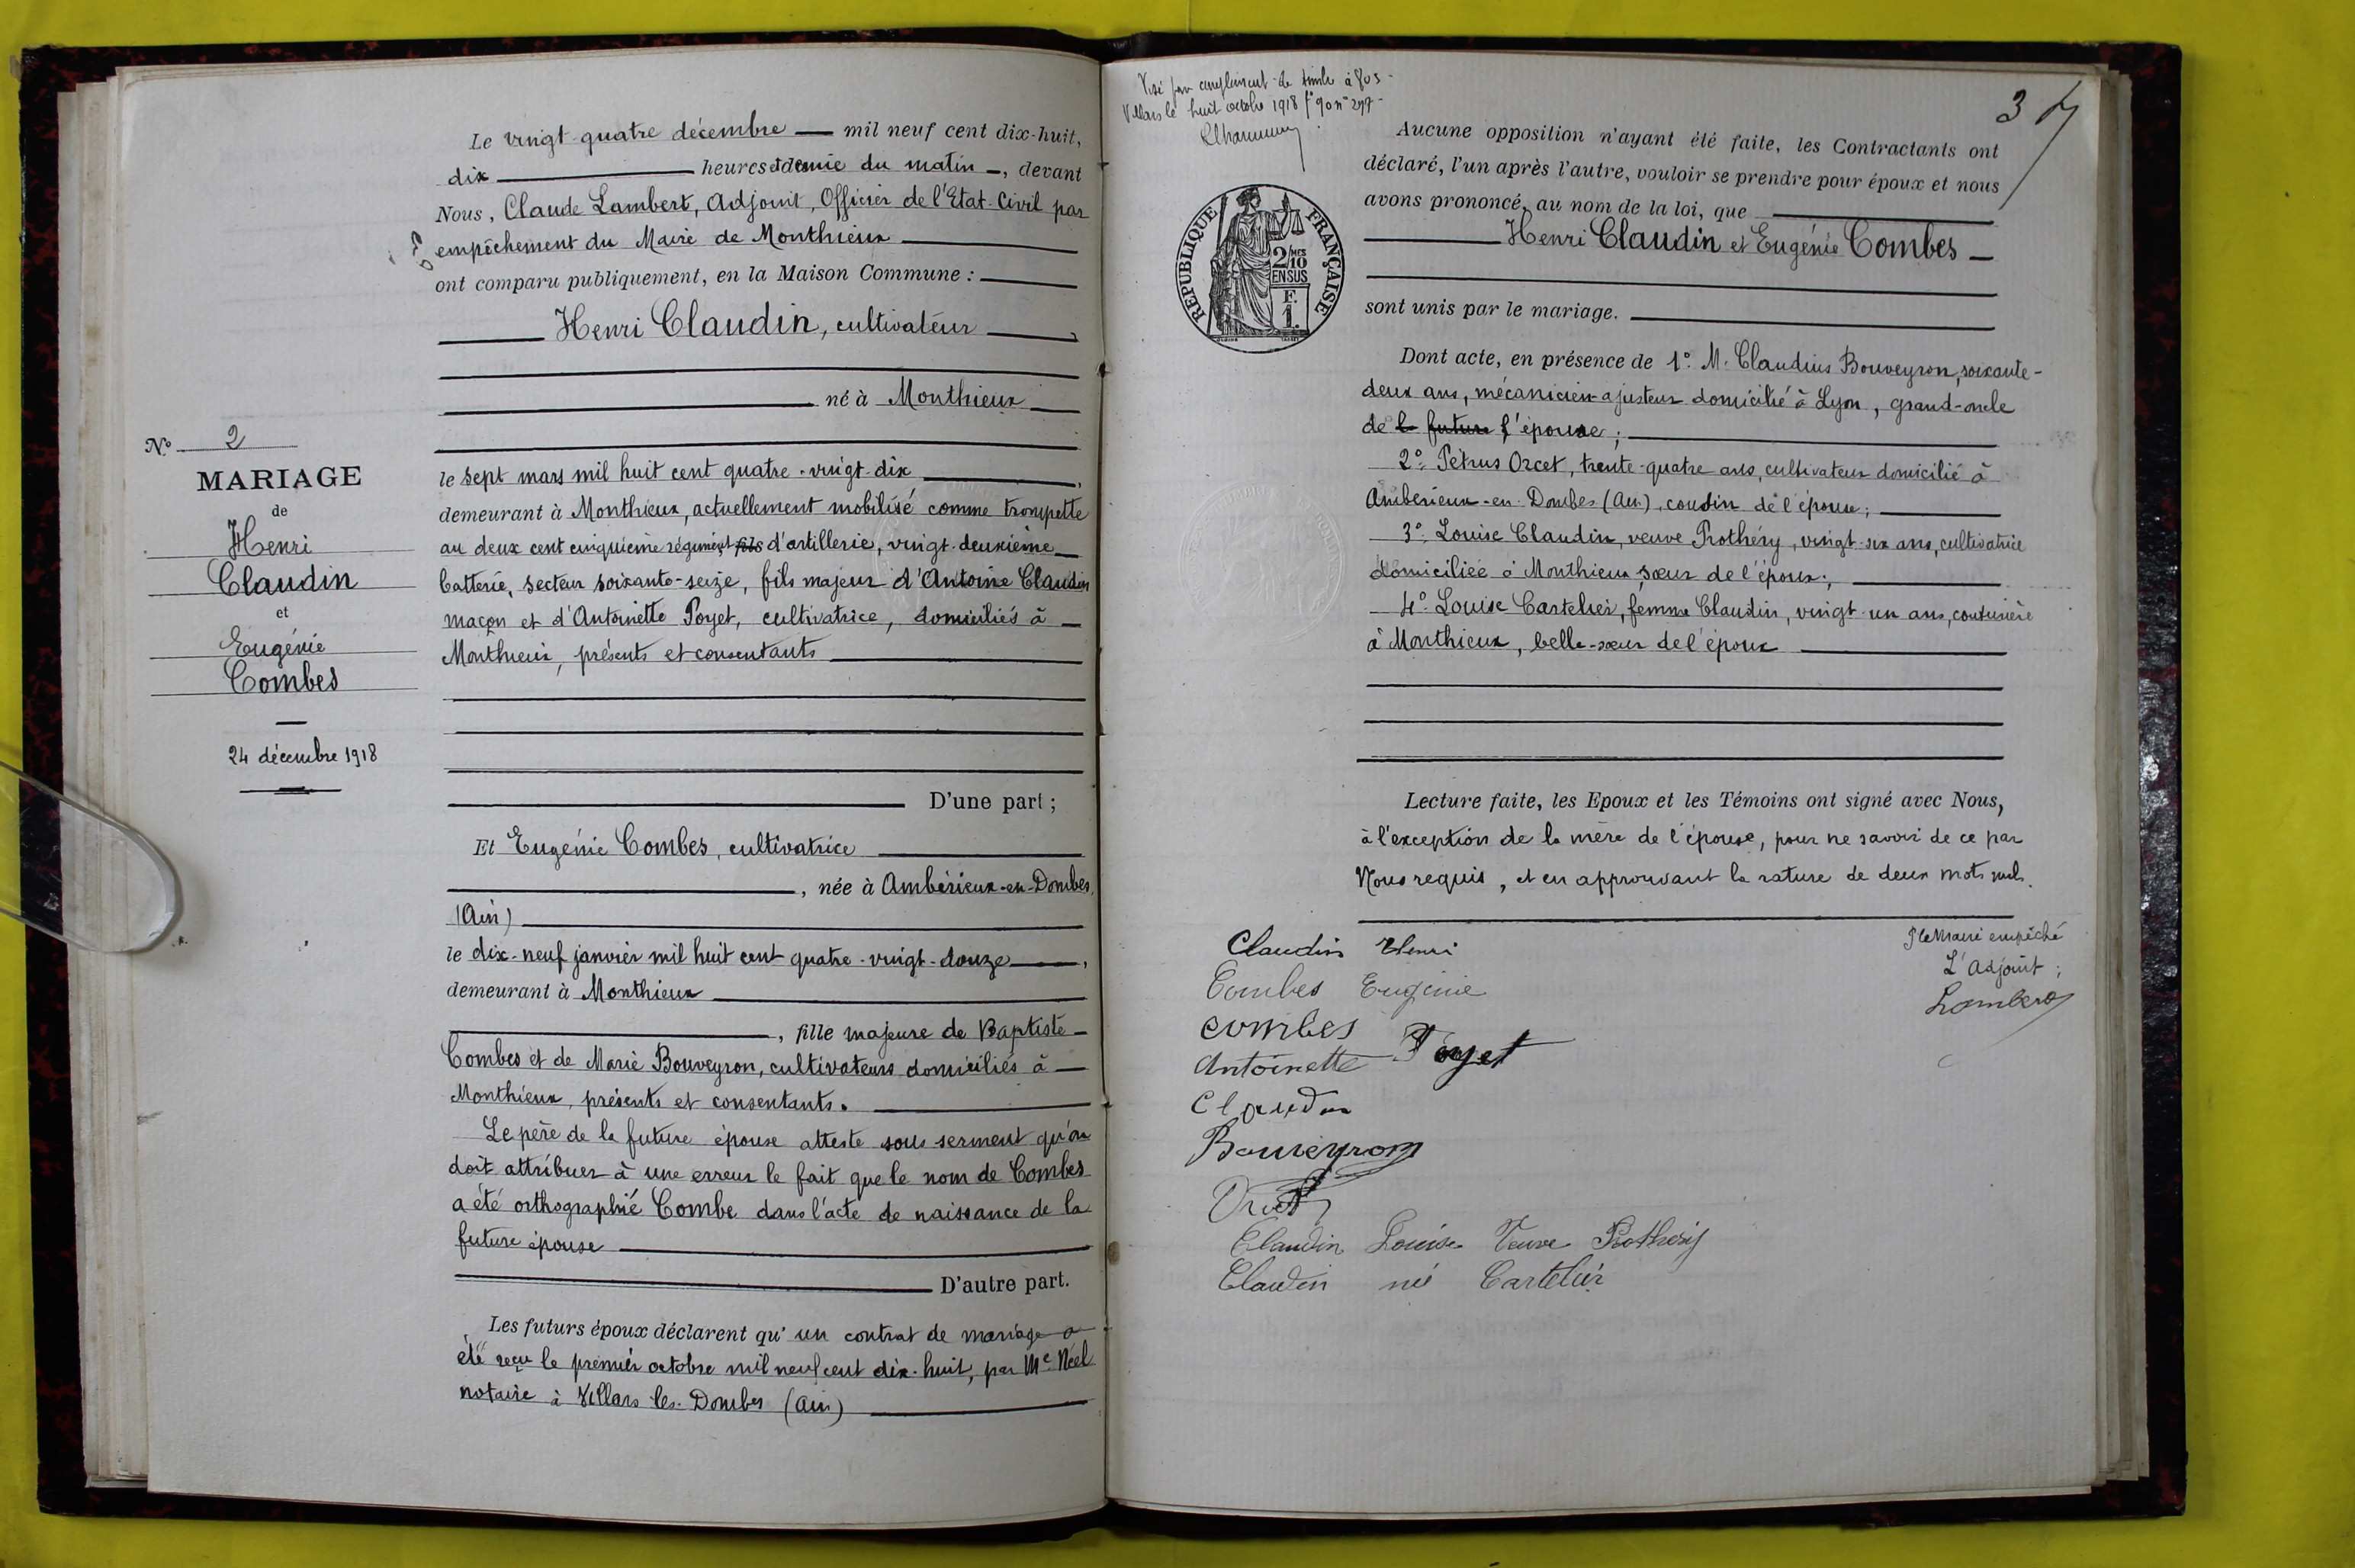 Le vingt-quatre décembre mil neuf cent dix-huit,
dix heures et demie du matin, devant
Nous, Claude Lambert, Adjoint, Officier de l'Etat-Civil par
empêchement du Maire de Monthieux
ont comparu publiquement, en la Maison Commune :
Henri Claudin, cultivateur
né à Monthieux
N° 2
MARIAGE
de
Henri
Claudin
et
Eugénie
Combes
24 décembre 1918
le sept mars mil huit cent quatre-vingt-dix,
demeurant à Monthieux, actuellement mobilisé comme trompette
au deux cent cinquième régiment fils d'artillerie, vingt-deuxième
batterie, secteur soixante-seize, fils majeur d'Antoine Claudin
maçon et d'Antoinette Poyet, cultivatrice, domiciliés à
Monthieux, présents et consentants
D'une part ;
Et Eugénie Combes, cultivatrice
, née à Ambérieux-en-Dombes,
(Ain)
le dix-neuf janvier mil huit cent quatre-vingt-douze,
demeurant à Monthieux
, fille majeure de Baptiste
Combes et de Marie Bouveyron, cultivateurs domiciliés à
Monthieux, présents et consentants.
Le père de la future épouse atteste sous serment qu'on
doit attribuer à une erreur le fait que le nom de Combes
a été orthographié Combe dans l'acte de naissance de la
future épouse
D'autre part.
Les futurs époux déclarent qu'un contrat de mariage a
été reçu le premier octobre mil neuf cent dix-huit, par Me Néel
notaire à Villars les-Dombes (Ain)
Visé pour complément de timbre à
Villars le huit octobre 1918
3
RÉPUBLIQUE FRANÇAISE
2/10 MES
EN SUS
F.
1.
Aucune opposition n'ayant été faite, les Contractants ont
déclaré, l'un après l'autre, vouloir se prendre pour époux et nous
avons prononcé, au nom de la loi, que
Henri Claudin et Eugénie Combes
sont unis par le mariage.
Dont acte, en présence de 1° M. Claudius Bouveyron, soixante-
deux ans, mécanicien-ajusteur domicilié à Lyon, grand-oncle
de la future l'épouse ;
2° Pétrus Orcet, trente-quatre ans, cultivateur domicilié à
Ambérieux-en-Dombes (Ain), cousin de l'épouse ;
3° Louise Claudin, veuve Prothéry, vingt-six ans, cultivatrice
domiciliée à Monthieux, sœur de l'époux ;
4° Louise Cartelier, femme Claudin, vingt-un ans, couturière
à Monthieux, belle-sœur de l'époux
Lecture faite, les Epoux et les Témoins ont signé avec Nous,
à l'exception de la mère de l'épouse, pour ne savoir de ce par
Nous requis, et en approuvant la rature de deux mots nuls.
Claudin Henri
Combes Eugénie
combes
Antoinette Poyet
Claudin
Bouveyron
Orcet
Claudin Louise Veuve Prothery
Claudin né Cartelier
P. le Maire empêché
L'Adjoint :
Lambert